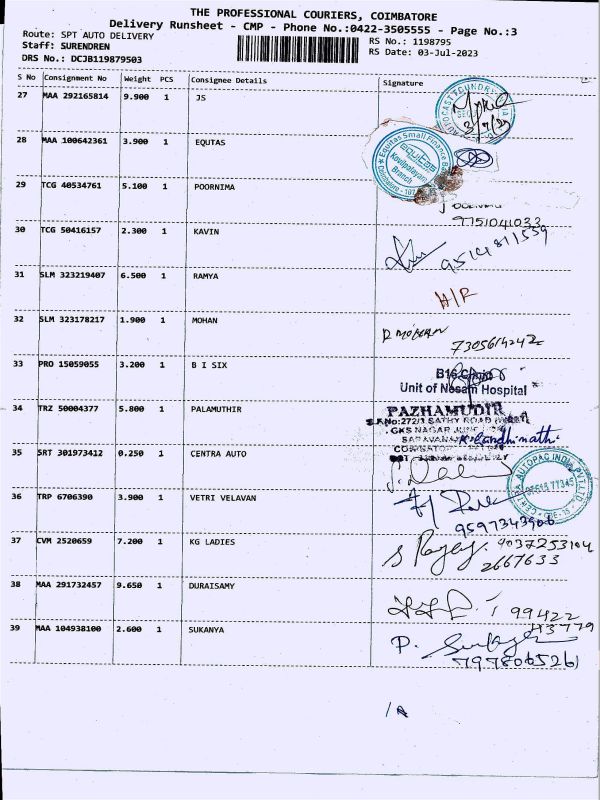 THE PROFESSIONAL COURIERS, COIMBATORE
Delivery Runsheet - CMP - Phone No.:0422-3505555 - Page No.:3
Route: SPT AUTO DELIVERY
RS No.: 1198795
Staff: SURENDREN
RS Date: 03-Jul-2023
DRS No.: DCJB119879503
S No Consignment No Weight PCS Consignee Details Signature
27 MAA 292165814 9.900 1 JS
3/7/23
28 MAA 100642361 3.900 1 EQUTAS
Equitas Small Finance Bank
equitas
Kovilpalayam
Branch
29 TCG 40534761 5.100 1 POORNIMA
9751041033
30 TCG 50416157 2.300 1 KAVIN
9514811559
31 SLM 323219407 6.500 1 RAMYA
H/R
32 SLM 323178217 1.900 1 MOHAN
R MOHAN
7305614242
33 PRO 15059055 3.200 1 B I SIX
Unit of Nesam Hospital
34 TRZ 50004377 5.800 1 PALAMUTHIR
PAZHAMUDIR
SATHY ROAD
35 SRT 301973412 0.250 1 CENTRA AUTO
36 TRP 6706390 3.900 1 VETRI VELAVAN
9597343906
37 CVM 2520659 7.200 1 KG LADIES
9037253104
2667633
38 MAA 291732457 9.650 1 DURAISAMY
99422
43779
39 MAA 104938100 2.600 1 SUKANYA
P.
7978065261